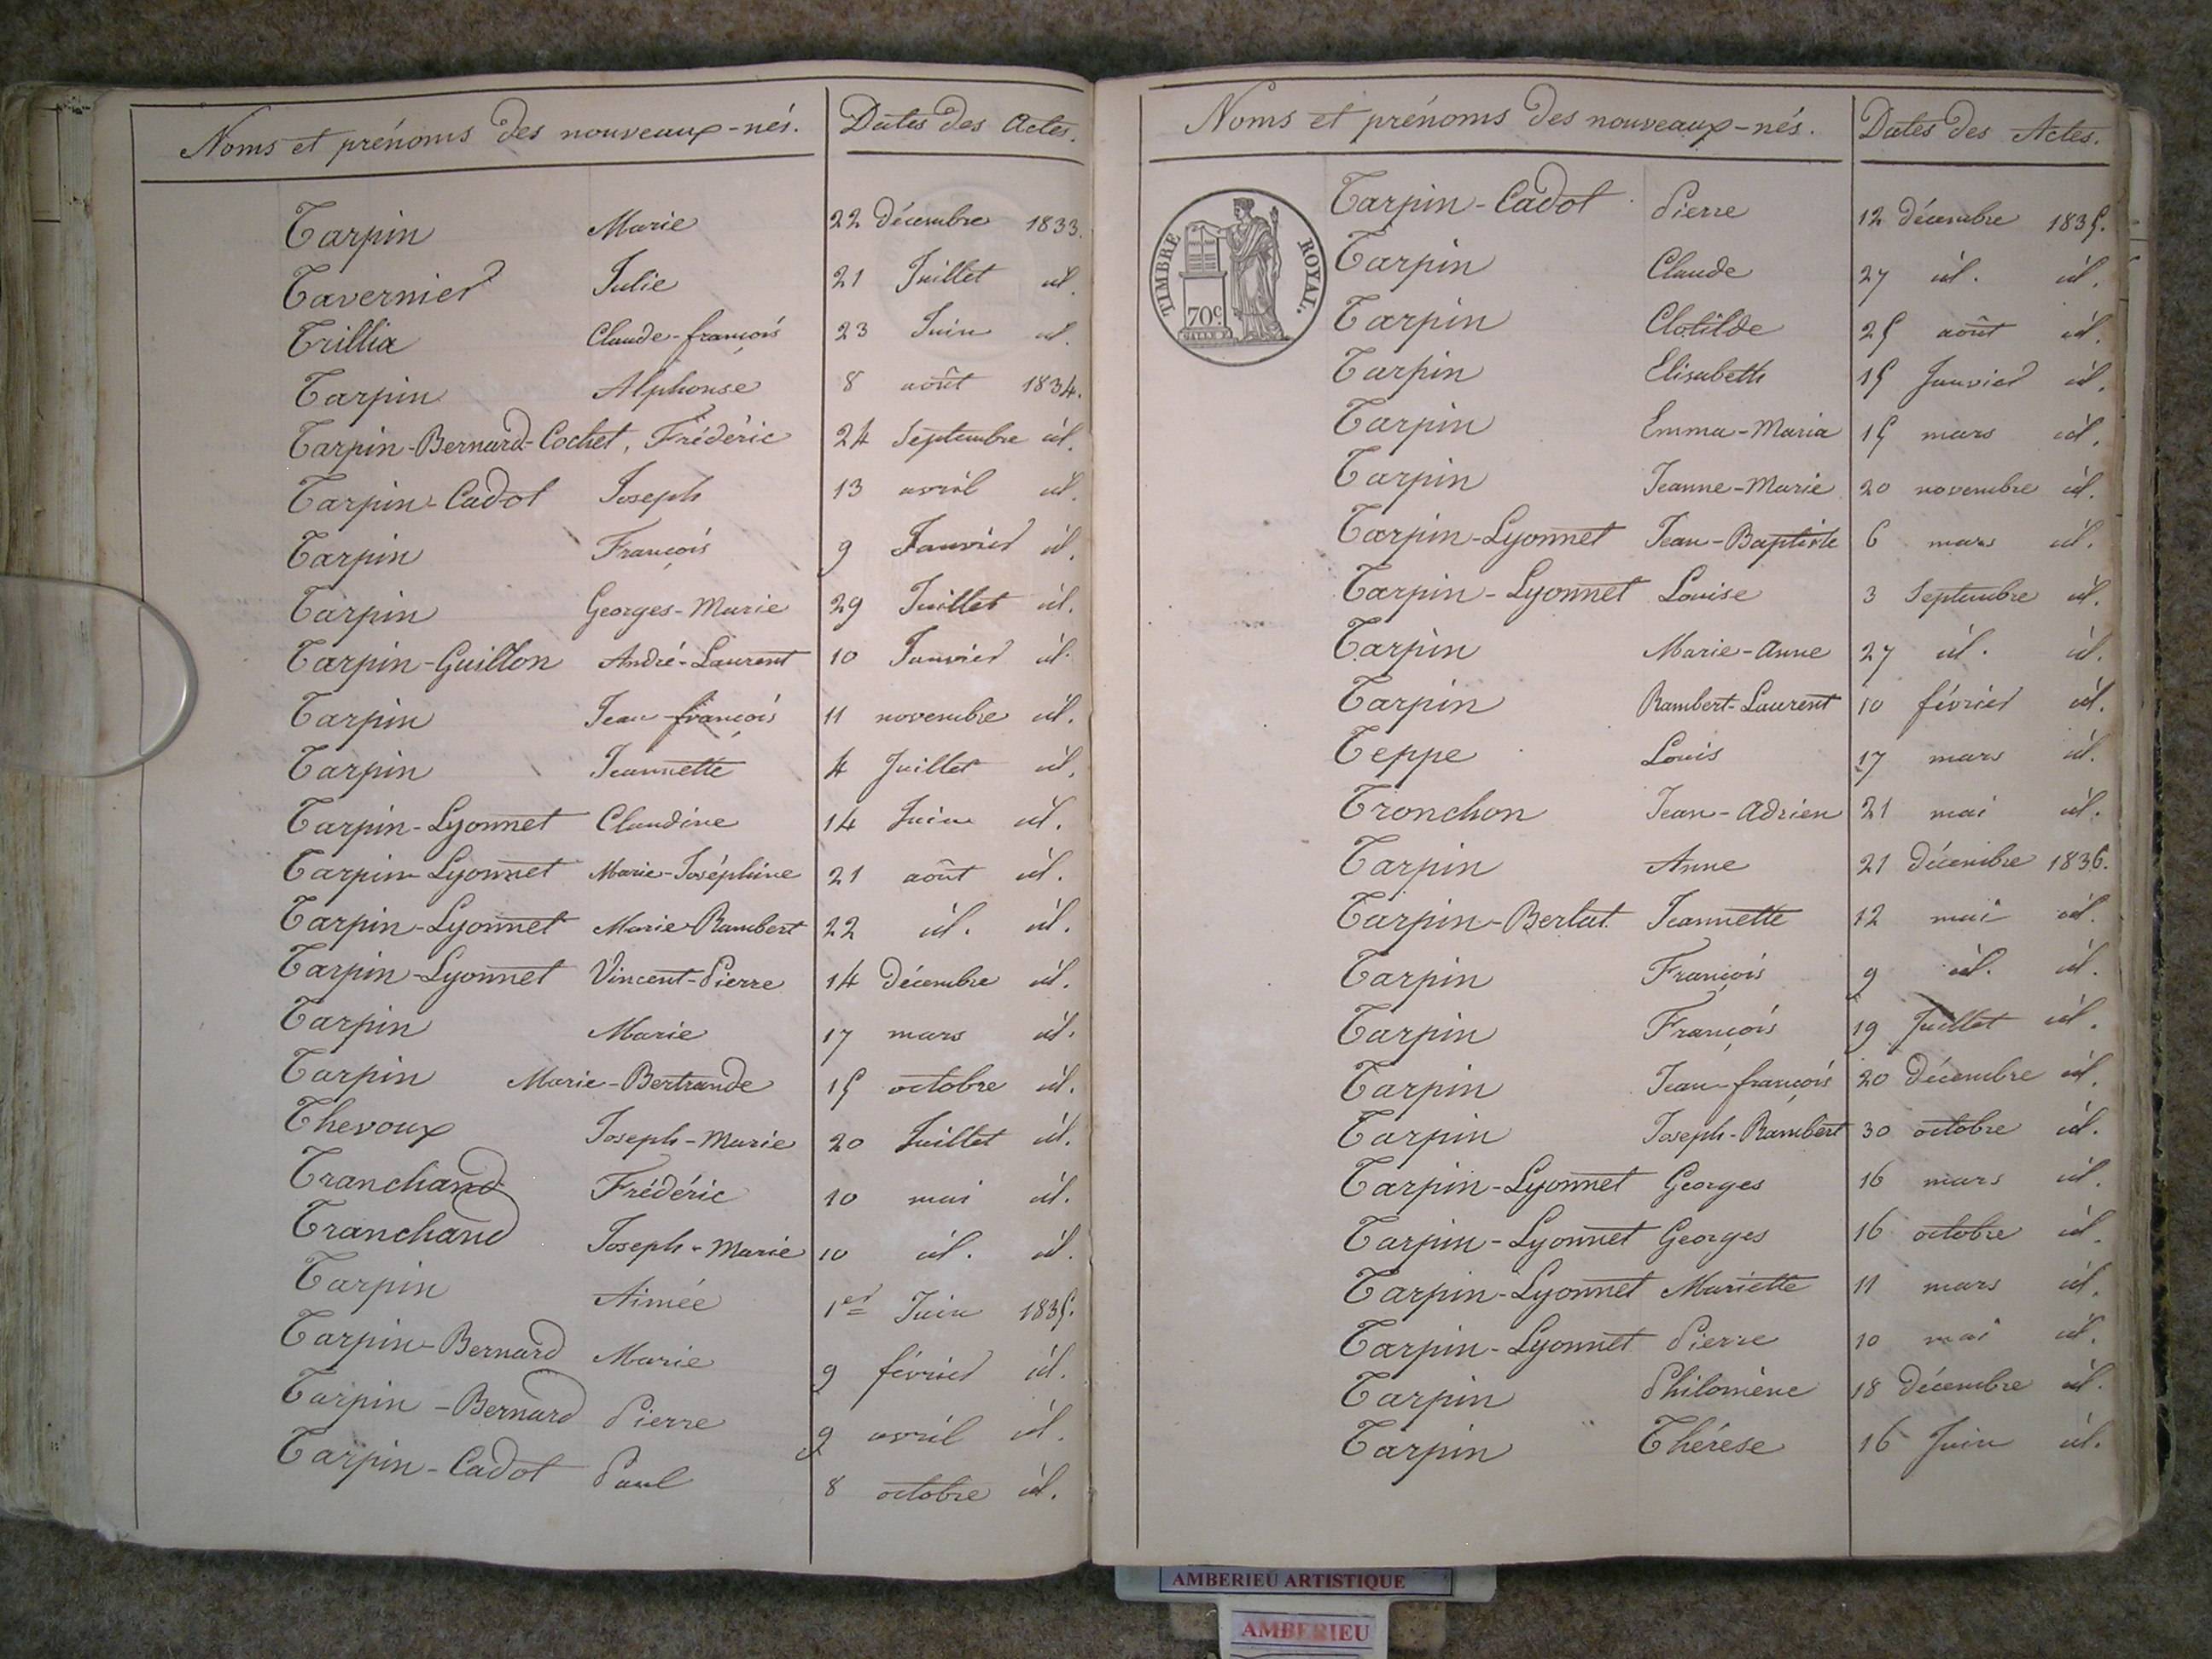 Noms et prénoms des nouveaux-nés. Dates des Actes.
Tarpin Marie 22 décembre 1833.
Tavernier Julie 21 Juillet id.
Trillia Claude-françois 23 Juin id.
Tarpin Alphonse 8 août 1834.
Tarpin-Bernard-Cochet, Frédéric 24 Septembre id.
Tarpin-Cadot Joseph 13 avril id.
Tarpin François 9 Janvier id.
Tarpin Georges-Marie 29 Juillet id.
Tarpin-Guillon André-Laurent 10 Janvier id.
Tarpin Jean-françois 11 novembre id.
Tarpin Jeannette 4 Juillet id.
Tarpin-Lyonnet Claudine 14 Juin id.
Tarpin-Lyonnet Marie-Joséphine 21 août id.
Tarpin-Lyonnet Marie-Rambert 22 id. id.
Tarpin-Lyonnet Vincent-Pierre 14 décembre id.
Tarpin Marie 17 mars id.
Tarpin Marie-Bertrande 15 octobre id.
Thevoux Joseph-Marie 20 Juillet id.
Tranchand Frédéric 10 mai id.
Tranchand Joseph-Marie 10 id. id.
Tarpin Aimée 1er Juin 1835.
Tarpin-Bernard Marie 9 février id.
Tarpin-Bernard Pierre 9 avril id.
Tarpin-Cadot Paul 8 octobre id.
Noms et prénoms des nouveaux-nés. Dates des Actes.
TIMBRE ROYAL.
70c
Tarpin-Cadot Pierre 12 décembre 1835.
Tarpin Claude 27 id. id.
Tarpin Clotilde 25 août id.
Tarpin Elisabeth 15 Janvier id.
Tarpin Emma-Maria 15 mars id.
Tarpin Jeanne-Marie 20 novembre id.
Tarpin-Lyonnet Jean-Baptiste 6 mars id.
Tarpin-Lyonnet Louise 3 Septembre id.
Tarpin Marie-Anne 27 id. id.
Tarpin Rambert-Laurent 10 février id.
Teppe Louis 17 mars id.
Tronchon Jean-Adrien 21 mai id.
Tarpin Anne 21 décembre 1836.
Tarpin-Berlat Jeannette 12 mai id.
Tarpin François 9 id. id.
Tarpin François 19 Juillet id.
Tarpin Jean-françois 20 décembre id.
Tarpin Joseph-Rambert 30 octobre id.
Tarpin-Lyonnet Georges 16 mars id.
Tarpin-Lyonnet Georges 16 octobre id.
Tarpin-Lyonnet Mariette 11 mars id.
Tarpin-Lyonnet Pierre 10 mai id.
Tarpin Philomène 18 décembre id.
Tarpin Thérèse 16 Juin id.
AMBERIEU ARTISTIQUE
AMBERIEU